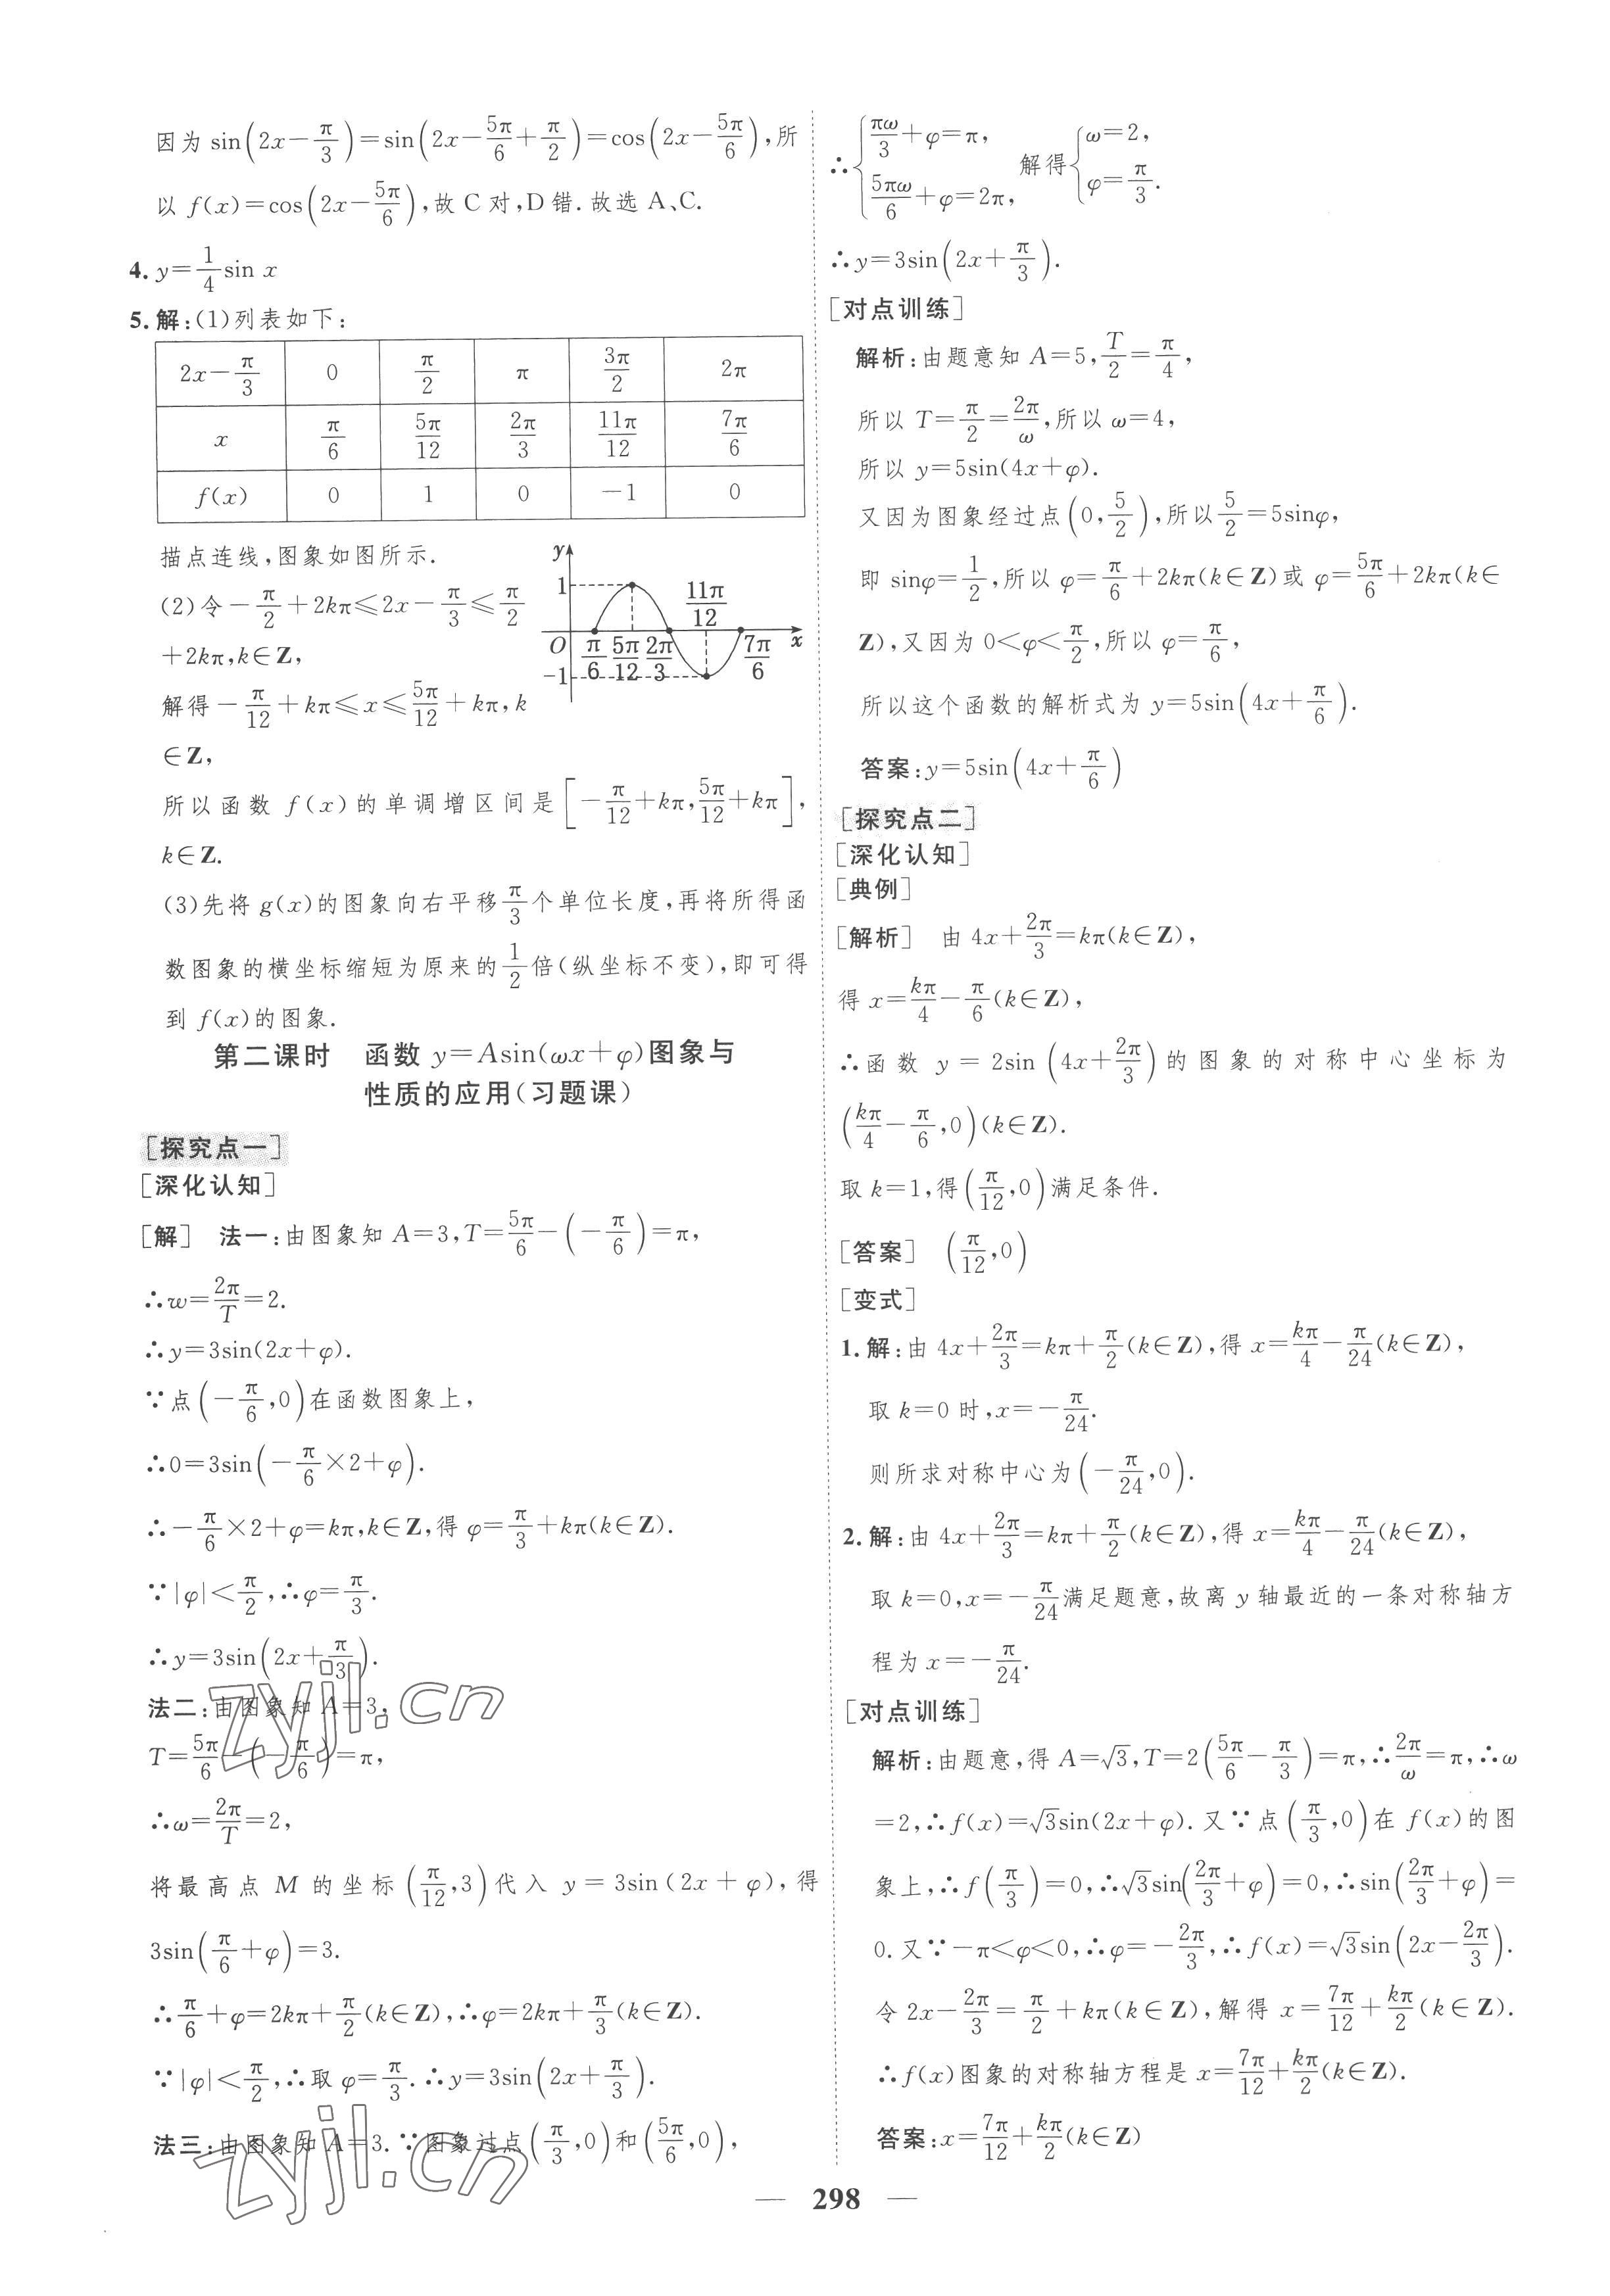 因为 sin(2x−π/3)=sin(2x−5π/6+π/2)=cos(2x−5π/6),所
以 f(x)=cos(2x−5π/6),故 C 对,D 错.故选 A、C.
4. y=1/4 sin x
5. 解:(1)列表如下:
2x−π/3 0 π/2 π 3π/2 2π
x π/6 5π/12 2π/3 11π/12 7π/6
f(x) 0 1 0 −1 0
描点连线,图象如图所示.
(2)令−π/2+2kπ≤2x−π/3≤π/2
+2kπ,k∈Z,
解得−π/12+kπ≤x≤5π/12+kπ,k
∈Z,
y
1
11π/12
O π/6 5π/12 2π/3 7π/6 x
−1
所以函数 f(x)的单调增区间是[−π/12+kπ,5π/12+kπ],
k∈Z.
(3)先将 g(x)的图象向右平移π/3个单位长度,再将所得函
数图象的横坐标缩短为原来的1/2倍(纵坐标不变),即可得
到 f(x)的图象.
第二课时 函数 y=Asin(ωx+φ)图象与
性质的应用(习题课)
[探究点一]
[深化认知]
[解] 法一:由图象知 A=3,T=5π/6−(−π/6)=π,
∴w=2π/T=2.
∴y=3sin(2x+φ).
∵点(−π/6,0)在函数图象上,
∴0=3sin(−π/6×2+φ).
∴−π/6×2+φ=kπ,k∈Z,得 φ=π/3+kπ(k∈Z).
∵|φ|<π/2,∴φ=π/3.
∴y=3sin(2x+π/3).
法二:由图象知 A=3,
T=5π/6−(−π/6)=π,
∴ω=2π/T=2,
将最高点 M 的坐标(π/12,3)代入 y=3sin(2x+φ),得
3sin(π/6+φ)=3.
∴π/6+φ=2kπ+π/2(k∈Z),∴φ=2kπ+π/3(k∈Z).
∵|φ|<π/2,∴取 φ=π/3.∴y=3sin(2x+π/3).
法三:由图象知 A=3.∵图象过点(π/3,0)和(5π/6,0),
∴{πω/3+φ=π, 5πω/6+φ=2π, 解得{ω=2, φ=π/3.
∴y=3sin(2x+π/3).
[对点训练]
解析:由题意知 A=5,T/2=π/4,
所以 T=π/2=2π/ω,所以 ω=4,
所以 y=5sin(4x+φ).
又因为图象经过点(0,5/2),所以5/2=5sinφ,
即 sinφ=1/2,所以 φ=π/6+2kπ(k∈Z)或 φ=5π/6+2kπ(k∈
Z),又因为 0<φ<π/2,所以 φ=π/6,
所以这个函数的解析式为 y=5sin(4x+π/6).
答案:y=5sin(4x+π/6)
[探究点二]
[深化认知]
[典例]
[解析] 由 4x+2π/3=kπ(k∈Z),
得 x=kπ/4−π/6(k∈Z),
∴函数 y=2sin(4x+2π/3)的图象的对称中心坐标为
(kπ/4−π/6,0)(k∈Z).
取 k=1,得(π/12,0)满足条件.
[答案] (π/12,0)
[变式]
1. 解:由 4x+2π/3=kπ+π/2(k∈Z),得 x=kπ/4−π/24(k∈Z),
取 k=0 时,x=−π/24.
则所求对称中心为(−π/24,0).
2. 解:由 4x+2π/3=kπ+π/2(k∈Z),得 x=kπ/4−π/24(k∈Z),
取 k=0,x=−π/24满足题意,故离 y 轴最近的一条对称轴方
程为 x=−π/24.
[对点训练]
解析:由题意,得 A=√3,T=2(5π/6−π/3)=π,∴2π/ω=π,∴ω
=2,∴f(x)=√3sin(2x+φ).又∵点(π/3,0)在 f(x)的图
象上,∴f(π/3)=0,∴√3sin(2π/3+φ)=0,∴sin(2π/3+φ)=
0.又∵−π<φ<0,∴φ=−2π/3,∴f(x)=√3sin(2x−2π/3).
令 2x−2π/3=π/2+kπ(k∈Z),解得 x=7π/12+kπ/2(k∈Z).
∴f(x)图象的对称轴方程是 x=7π/12+kπ/2(k∈Z).
答案:x=7π/12+kπ/2(k∈Z)
— 298 —
zyjl.cn
zyjl.cn